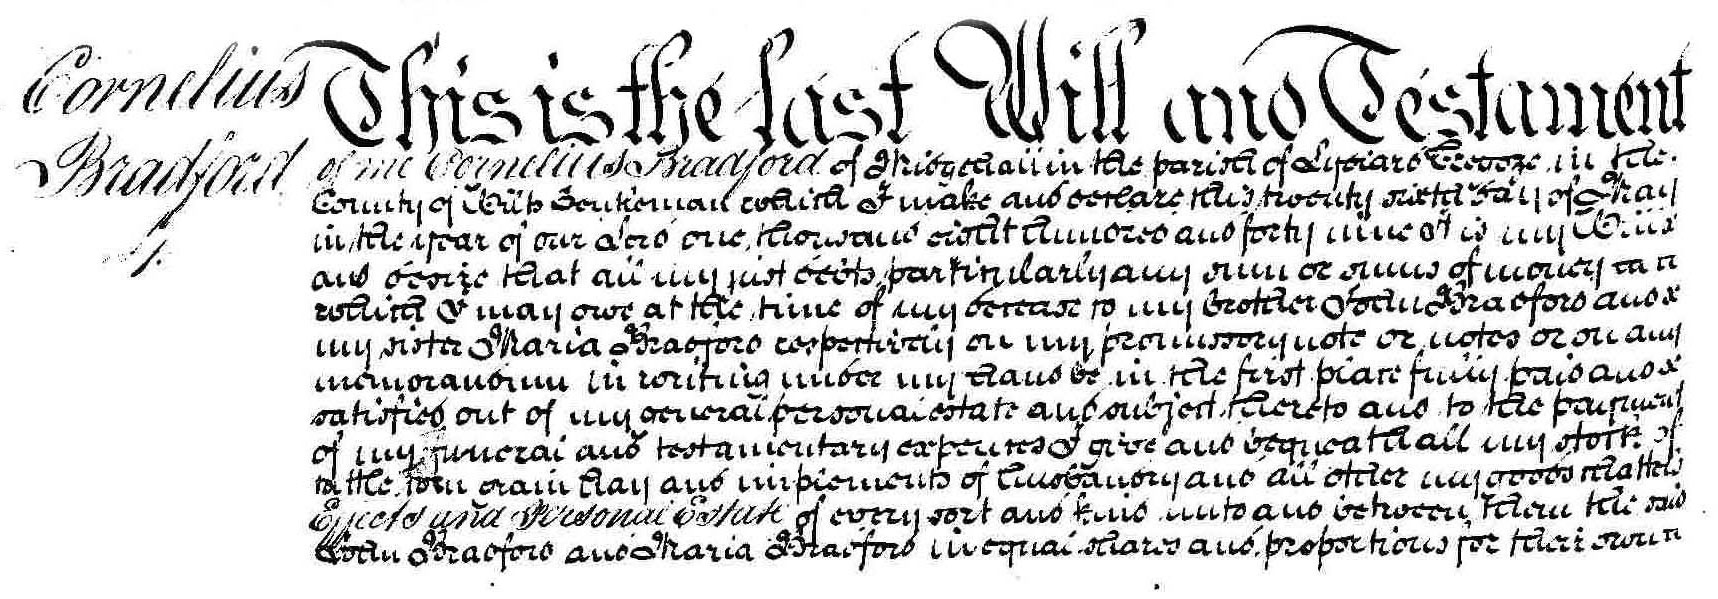 Cornelius
Bradford
This is the last Will and Testament
of me Cornelius Bradford of Midgehall in the parish of Lydiard Tregoze in the
County of Wilts Gentleman which I make and declare this twenty sixth day of May
in the year of our Lord one thousand eight hundred and forty nine It is my Will &
and desire that all my just debts particularly any sum or sums of money
which I may owe at the time of my decease to my brother John Bradford and &
my sister Maria Bradford respectively on my promissory note or notes or on any
memorandum in writing under my hand be in the first place fully paid and &
satisfied out of my general personal estate and subject thereto and to the payment
of my funeral and testamentary expences I give and bequeath all my stock of
cattle corn grain hay and implements of husbandry and all other my goods chattels
Effects and Personal Estate of every sort and kind unto and between them the said
John Bradford and Maria Bradford in equal shares and proportions for their own